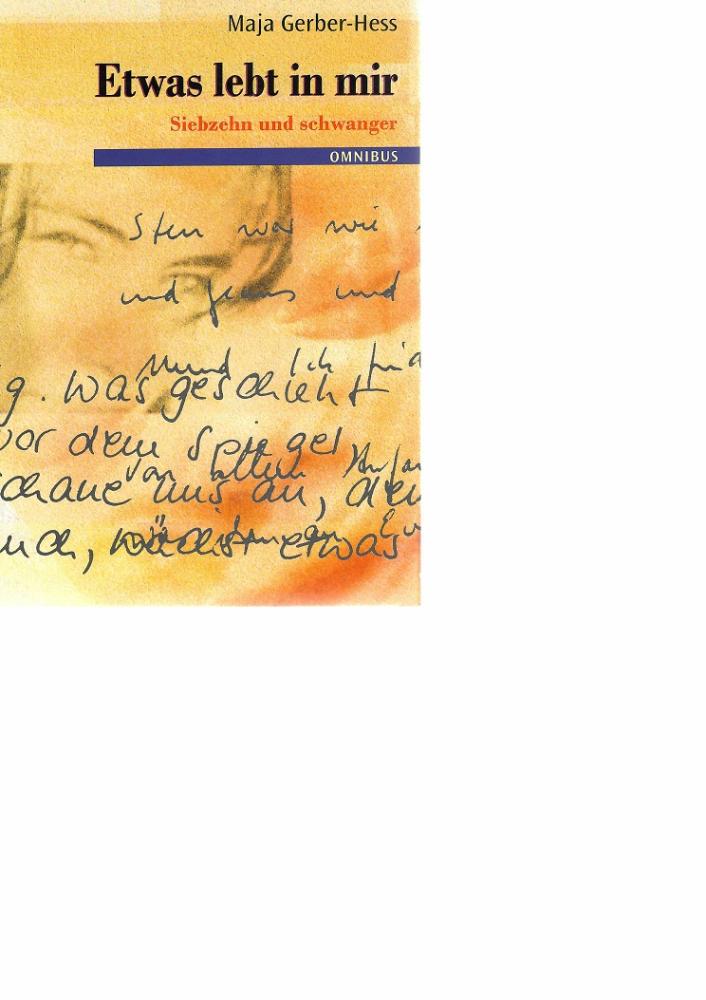 Maja Gerber-Hess
Etwas lebt in mir
Siebzehn und schwanger
OMNIBUS
war wie
und und
Mund Ich
g. Was geschieht
vor dem Spiegel,
von allem
schaue uns an, den
uch, wächst etwas